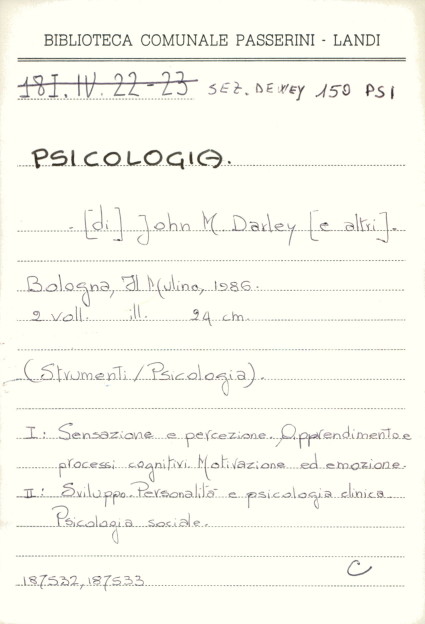 BIBLIOTECA COMUNALE PASSERINI - LANDI
18I.IV.22-23 SEZ. DEWEY 150 PSI
PSICOLOGIA.
- [di] John M Darley [e altri].
Bologna, Il Mulino, 1986.
2 voll. ill. 24 cm.
(Strumenti/Psicologia).
I: Sensazione e percezione. Apprendimento e
processi cognitivi. Motivazione ed emozione.
II: Sviluppo. Personalità e psicologia clinica.
Psicologia sociale.
C
187532, 187533